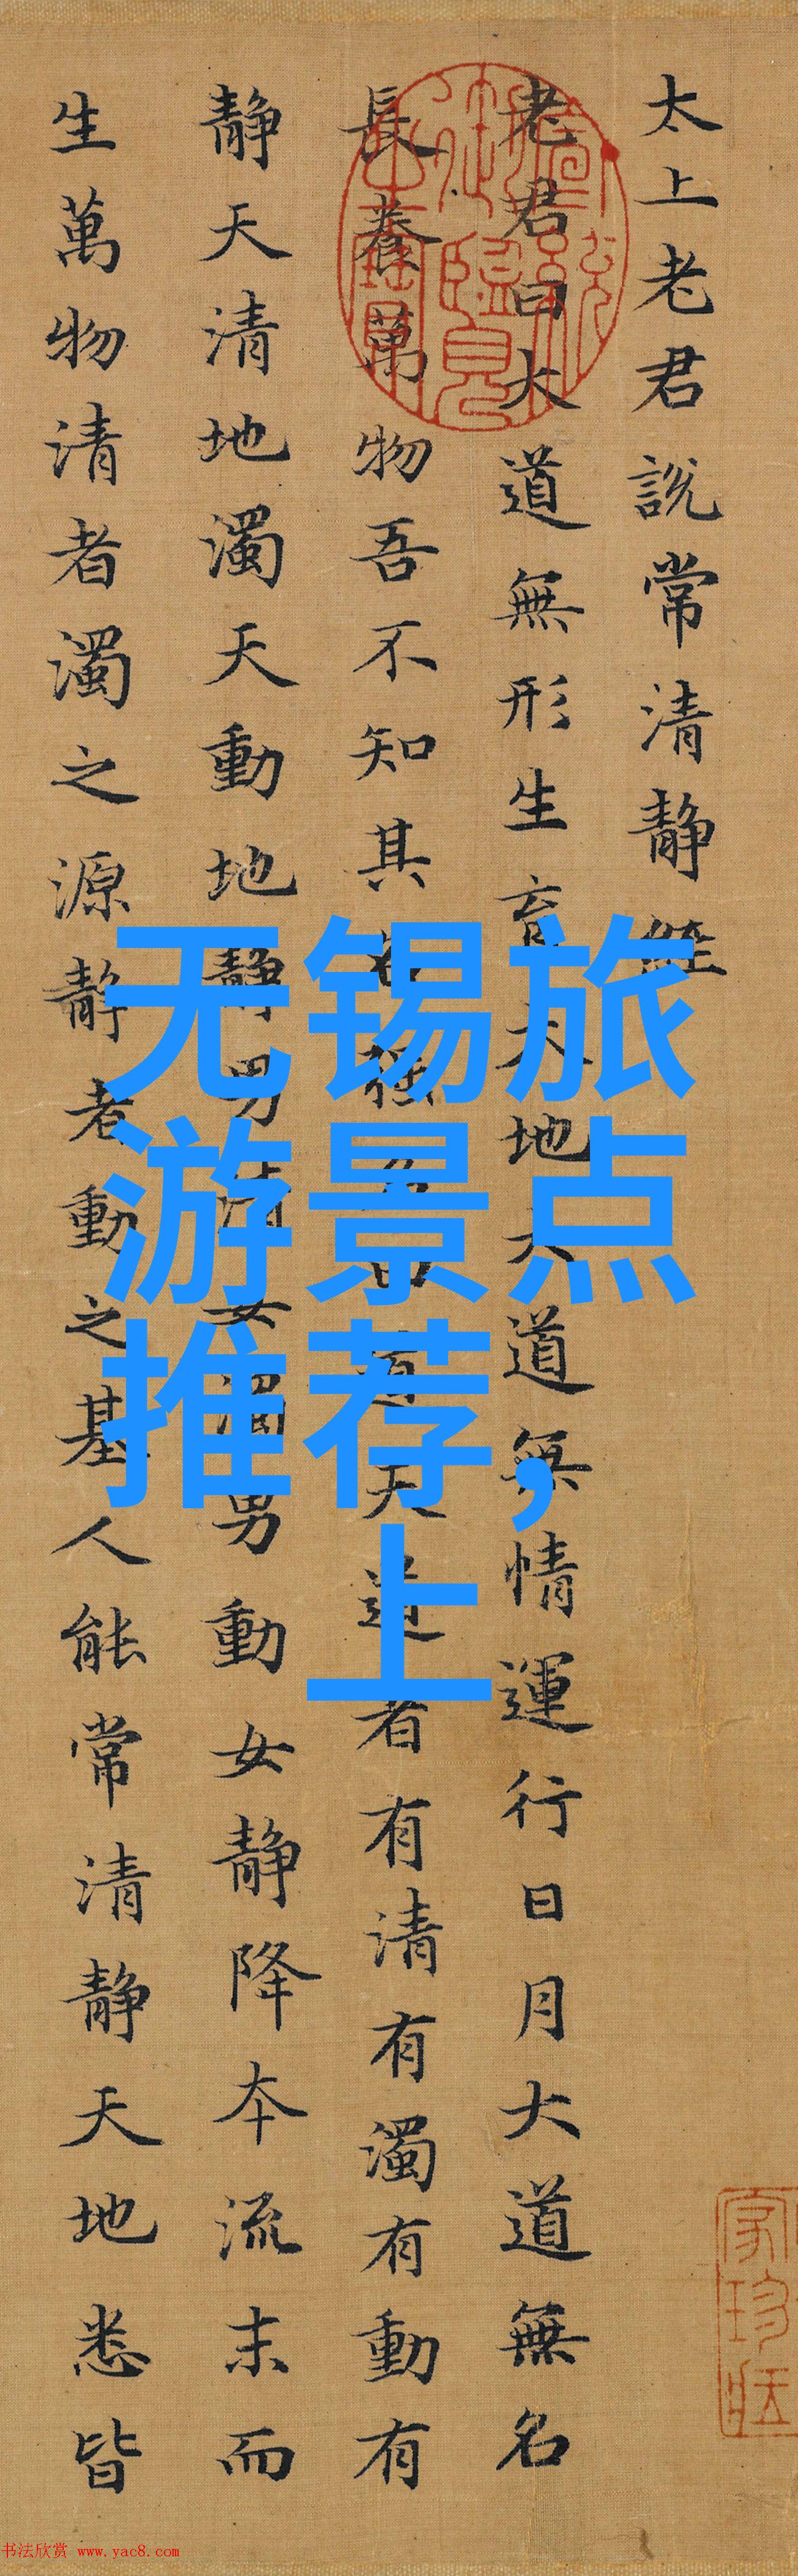 太上老君說常清静經
老君曰大道無形生育天地大道無情運行日月大道無名
長養萬物吾不知其名强名曰道夫道者有清有濁有動有
静天清地濁天動地静男清女濁男動女静降本流末而
生萬物清者濁之源静者動之基人能常清静天地悉皆
宣統御覽之寶
无锡旅
游景点
推荐,
上
书法欣赏 www.yac8.com